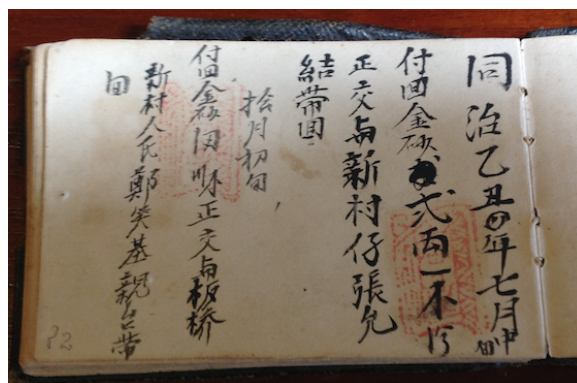 同治乙丑四年七月中旬
付回金砂弍両一不
正交与新村仔張允
結帶回
拾月初旬
付回金砂 正交与板桥
新村人氏鄭癸基親台帶
回
82